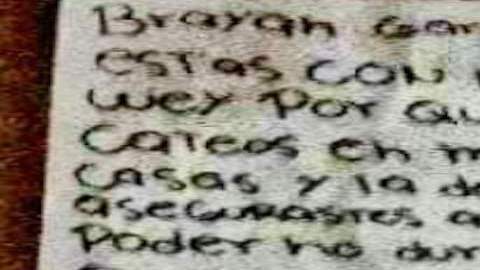 Brayan Gar
estas con
wey Por qu
Cateos en m
casas y la de
asecurastes a
Poder no dur